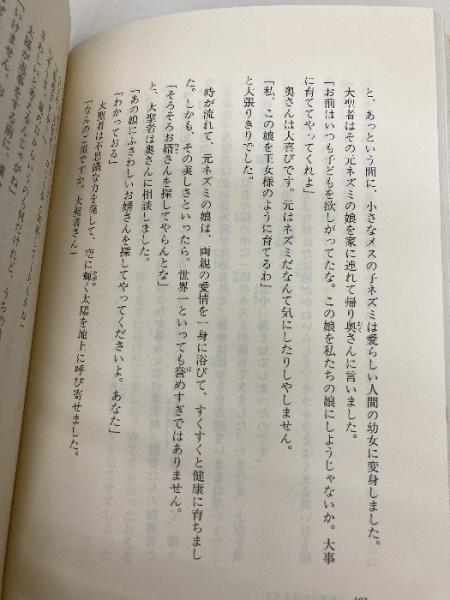 と、あっという間に、小さなメスの子ネズミは愛らしい人間の幼女に変身しました。
大聖者はその元ネズミの娘を家に連れて帰り奥さんに言いました。
「お前はいつも子どもを欲しがってたな。この娘を私たちの娘にしようじゃないか。大事
に育ててやってくれよ」
奥さんは大喜びです。元はネズミだなんて気にしたりしやしません。
「私、この娘を王女様のように育てるわ」
と大張りきりでした。
時が流れて、元ネズミの娘は、両親の愛情を一身に浴びて、すくすくと健康に育ちまし
た。しかも、その美しさといったら。世界一といっても誉めすぎではありません。
「そろそろお婿さんを探してやらんとな」
と、大聖者は奥さんに相談しました。
「あの娘にふさわしいお婿さんを探してやってくださいよ。あなた」
「わかっておる」
大聖者は不思議な力を発して、空に輝く太陽を地上に呼び寄せました。
「なんのご用ですか。大聖者さん」